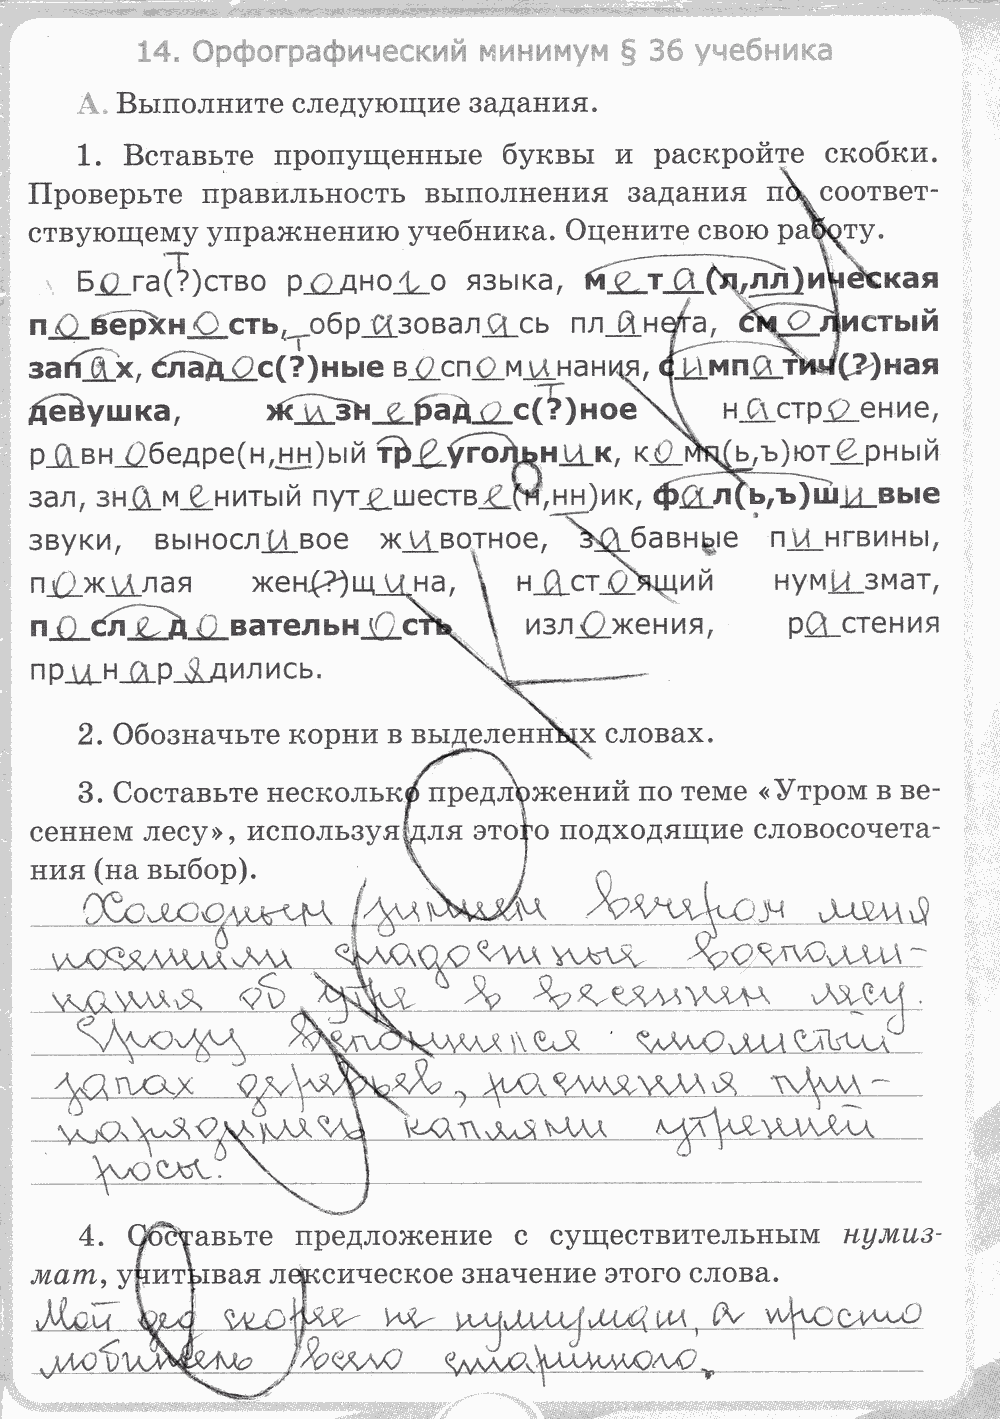 14. Орфографический минимум § 36 учебника
А. Выполните следующие задания.
1. Вставьте пропущенные буквы и раскройте скобки.
Проверьте правильность выполнения задания по соответ-
ствующему упражнению учебника. Оцените свою работу.
Т
Бога(?)ство родного языка, мета(л,лл)ическая
поверхность, образовалась планета, смолистый
Т
запах, сладос(?)ные воспоминания, симпатич(?)ная
Т
девушка, жизнерадос(?)ное настроение,
равнобедре(н,нн)ый треугольник, комп(ь,ъ)ютерный
зал, знаменитый путешестве(н,нн)ик, фал(ь,ъ)шивые
звуки, выносливое животное, забавные пингвины,
пожилая жен(?)щина, настоящий нумизмат,
последовательность изложения, растения
принарядились.
2. Обозначьте корни в выделенных словах.
3. Составьте несколько предложений по теме «Утром в ве-
сеннем лесу», используя для этого подходящие словосочета-
ния (на выбор).
Холодным зимнем вечером меня
посетили сладостные воспоми-
нания об утре в весеннем лесу.
Сразу вспомнился смолистый
запах деревьев, растения при-
нарядились каплями утренней
росы.
4. Составьте предложение с существительным нумиз-
мат, учитывая лексическое значение этого слова.
Мой дед скорее не нумизмат, а просто
любитель всего старинного.